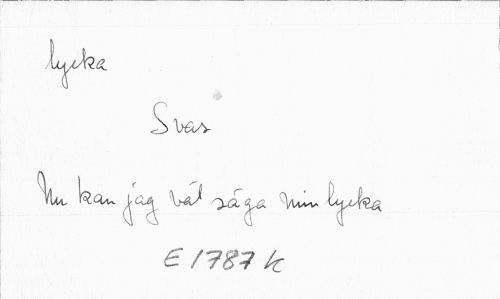 lycka
Svas
Nu kan jag väl säga min lycka
E 1787 k